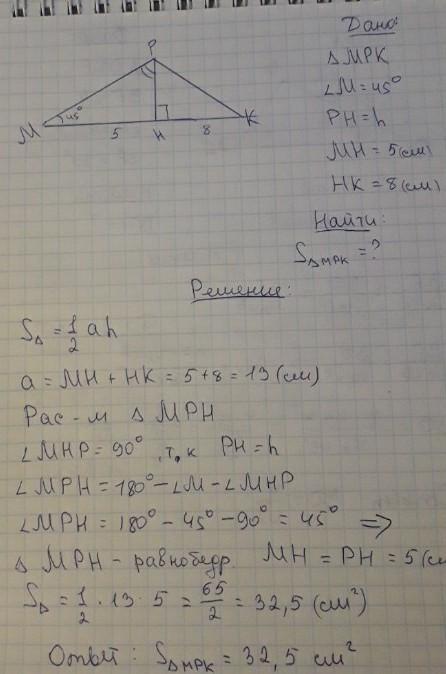 Дано:
△MPK
∠M = 45°
PH = h
MH = 5 (см)
HK = 8 (см)
Найти:
S△MPK = ?
P
M 45° 5 H 8 K
Решение:
S△ = 1/2 ah
a = MH + HK = 5 + 8 = 13 (см)
Рас-м △ MPH
∠MHP = 90°, т.к PH = h
∠MPH = 180° - ∠M - ∠MHP
∠MPH = 180° - 45° - 90° = 45° ⇒
△ MPH - равнобедр. MH = PH = 5 (см
S△ = 1/2 · 13 · 5 = 65/2 = 32,5 (см²)
Ответ: S△MPK = 32,5 см²